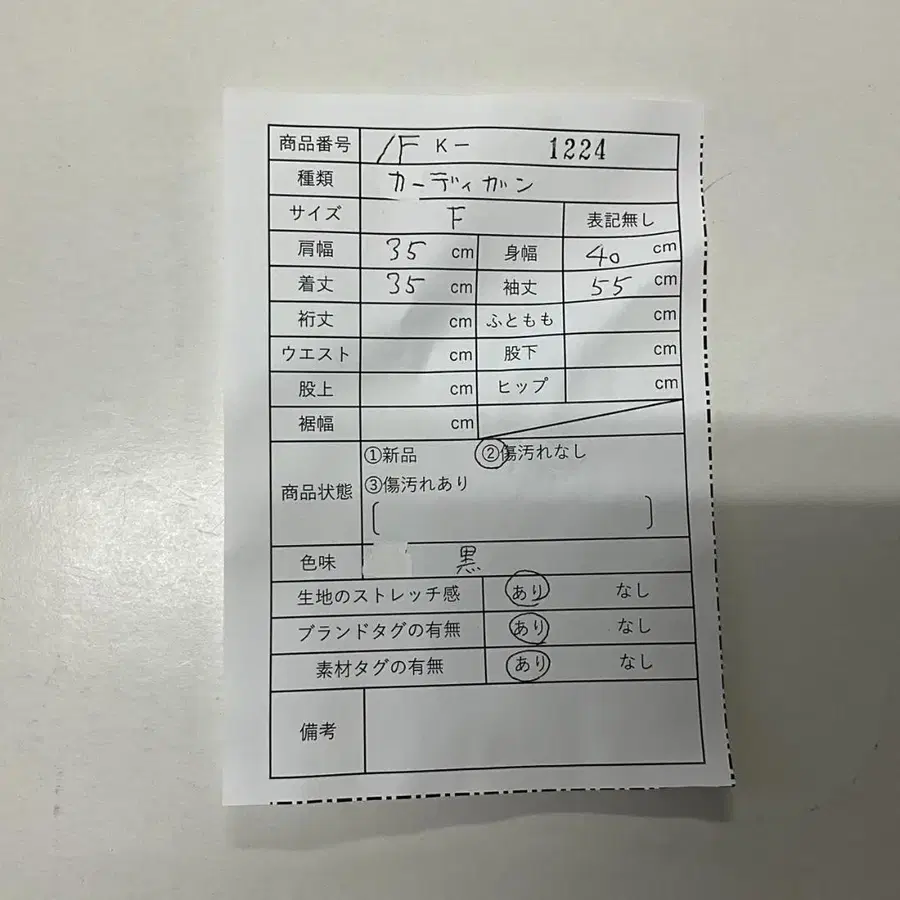 商品番号 1F K－ 1224
種類 カーディガン
サイズ F 表記無し
肩幅 35 cm 身幅 40 cm
着丈 35 cm 袖丈 55 cm
裄丈 cm ふともも cm
ウエスト cm 股下 cm
股上 cm ヒップ cm
裾幅 cm
商品状態 ①新品 ②傷汚れなし
③傷汚れあり
色味 黒
生地のストレッチ感 あり なし
ブランドタグの有無 あり なし
素材タグの有無 あり なし
備考